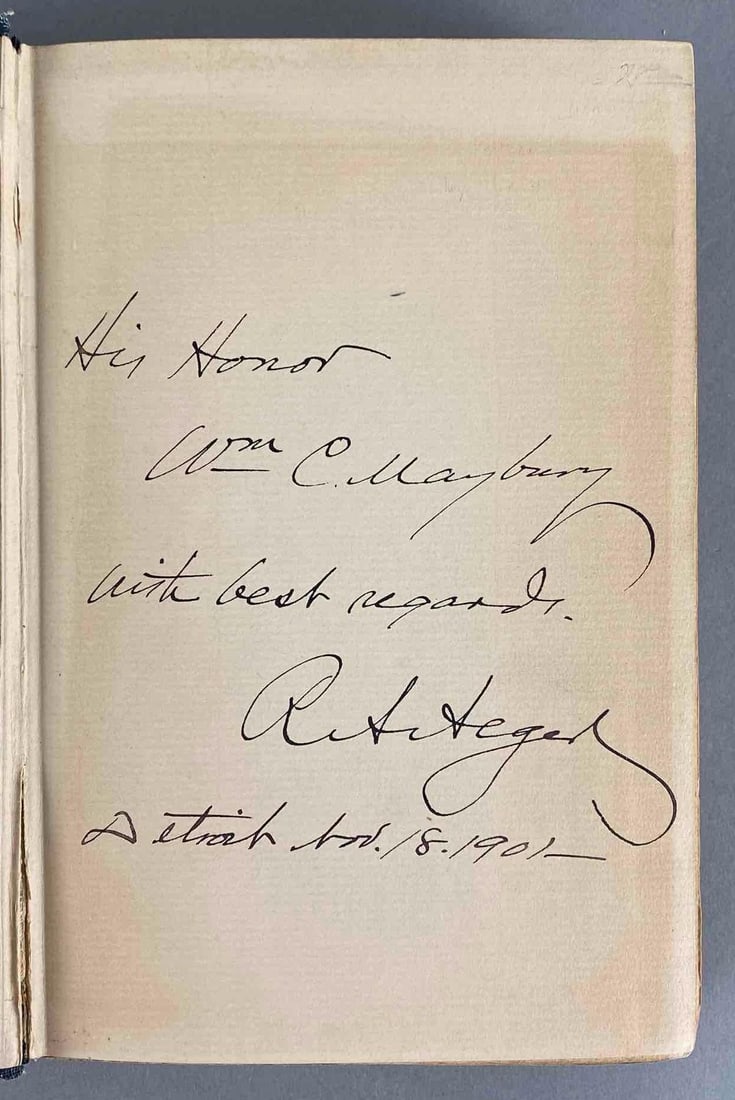 His Honor
Wm C. Maybury
with best regards.
R. A. Alger
Detroit Nov. 18. 1901